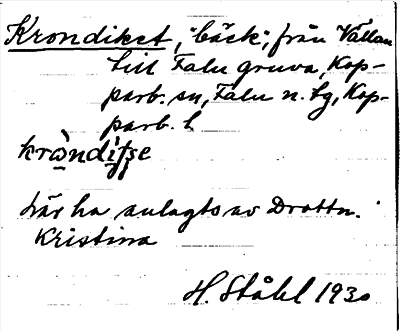 Krondiket, "bäck", från Vällan
till Falu gruva, Kop-
parb. sn, Falu n. bg, Kop-
parb. l
lär ha anlagts av Drottn.
Kristina
H. Ståhl 1930